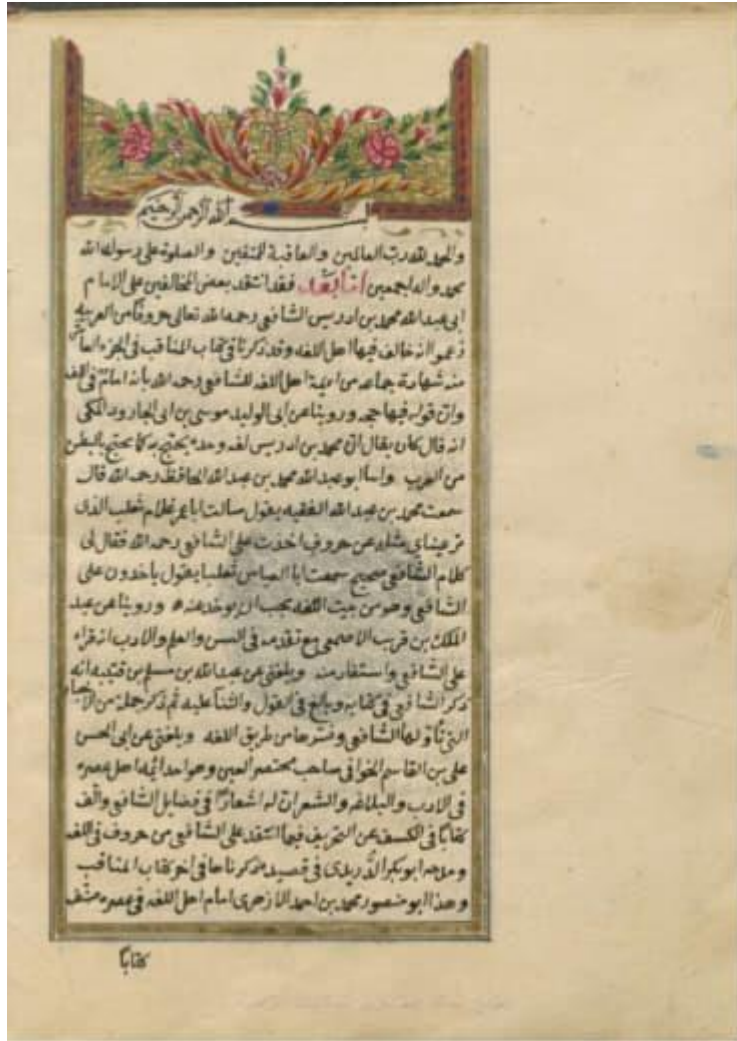 بسم الله الرحمن الرحيم
والحمد لله رب العالمين والعاقبة للمتقين والصلوة على رسوله الله
محمد واله اجمعين اما بعد فقد انتقد بعض المخالفين على الامام
ابى عبد الله محمد بن ادريس الشافعى رحمه الله تعالى حروفا من العربية
زعموا انه خالف فيها اهل اللغه وقد ذكرنا فى كتاب المناقب فى الجزء العاشر
منه شهادة جماعه من ايمة اهل اللغه للشافعى رحمه الله بانه امام فى اللغه
وان قوله فيها حجه وروينا عن ابى الوليد موسى بن ابى الجارود المكى
انه قال كان يقال ان محمد بن ادريس لغه وحده يحتج به كما يحتج بالبطن
من العرب وانبا ابو عبد الله محمد بن عبد الله الحافظ رحمه الله قال
سمعت محمد بن عبد الله الفقيه يقول سالت ابا عمر غلام ثعلب الذى
لم تر عيناى مثله عن حروف اخذت على الشافعى رحمه الله فقال لى
كلام الشافعى صحيح سمعت ابا العباس ثعلبا يقول ياخذون على
الشافعى وهو من بيت اللغه يجب ان يوخذ عنه وروينا عن عبد
الملك بن قريب الاصمعى مع تقدمه فى السن والعلم والادب انه قراء
على الشافعى واستفاد منه وبلغنى عن عبد الله بن مسلم بن قتيبه انه
ذكر الشافعى فى كتابه وبالغ فى القول والثنا عليه ثم ذكر جملة من الاخبار
التى تأولها الشافعى وفسرها من طريق اللغه وبلغنى عن ابى الحسن
على بن القاسم الخوافى صاحب مختصر العين وهو احد ائمه اهل عصره
فى الادب والبلاغه والشعر ان له اشعارا فى فضايل الشافعى والف
كتابا فى الكشف عن التحريف فيما انتقد على الشافعى من حروف فى اللغه
ومدحه ابو بكر الدريدى فى قصيده ذكرناها فى اخر كتاب المناقب
وهذا ابو منصور محمد بن احمد الازهرى امام اهل اللغه فى عصره صنف
كتابا